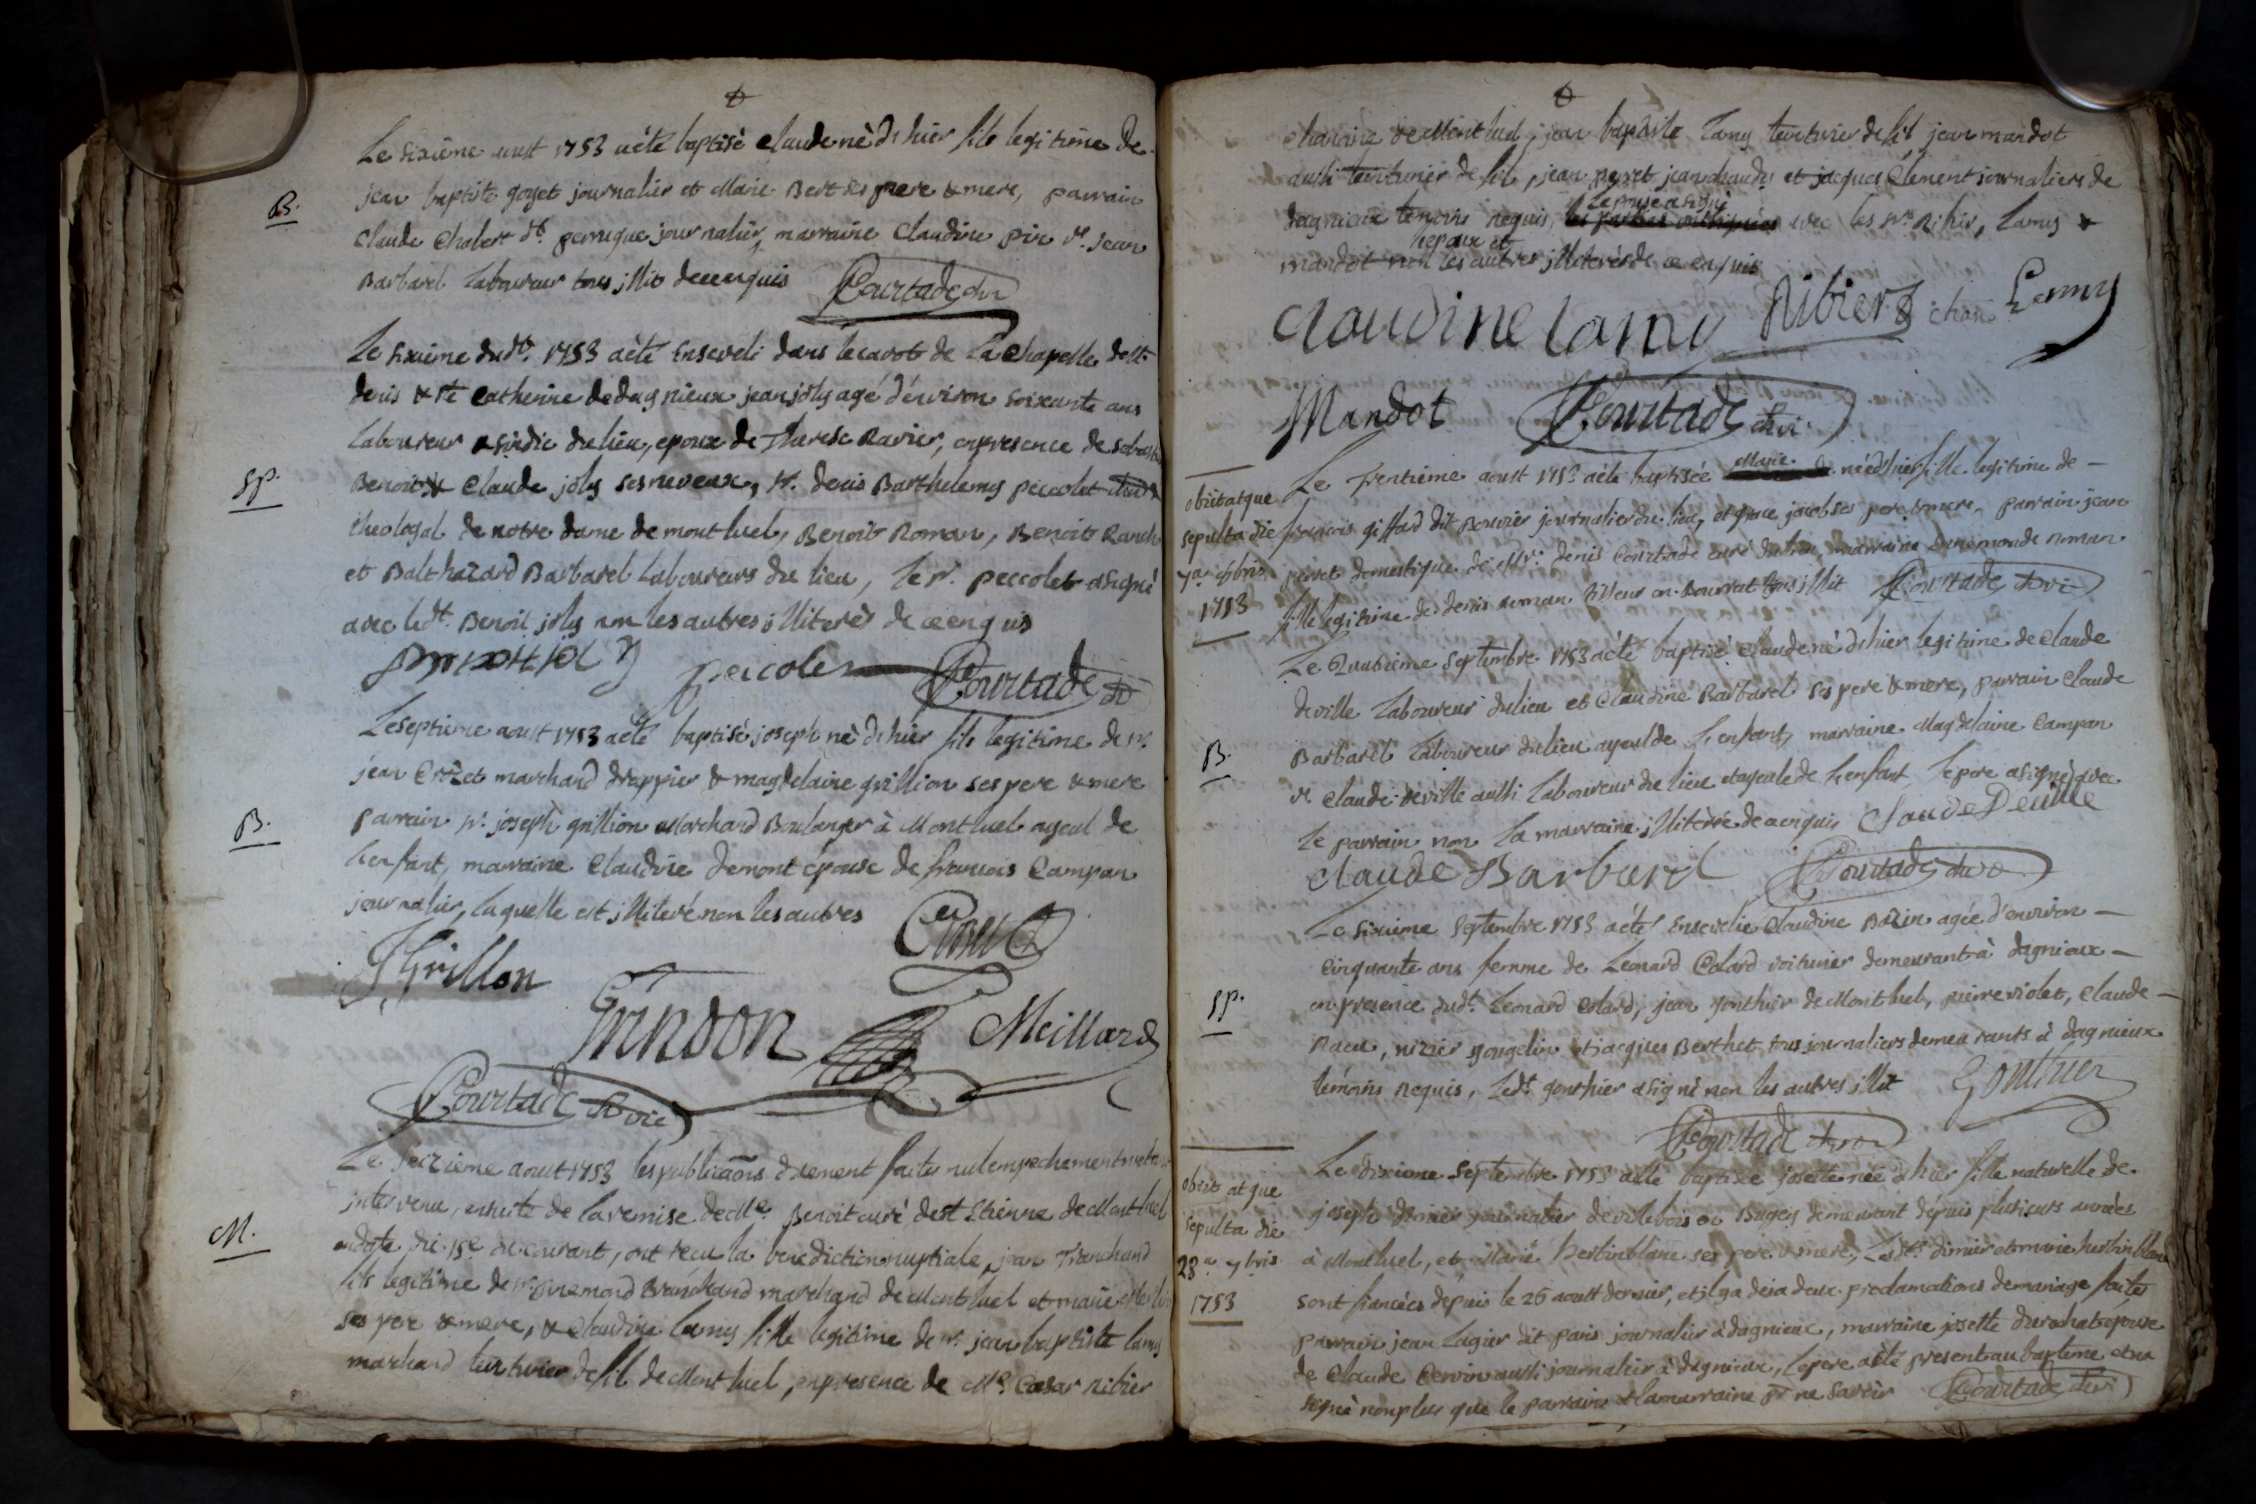 Le sixième aust 1753 aèté baptisè Claude nè d'hier fils legitime de
B.
jean baptiste goyet journalier et Marie Bert ses pere & mere, parrain
Claude Chabert dt. perruque journalier, marraine Claudine pin vt. jean
Barbarel Laboureur tous illit de ce enquis Courtade
Le sixième dudt. 1753 aèté enseveli dans le cavot de La Chapelle de St.
denis & ste Catherine de dagnieux jean joly agé d'environ soixante ans
Laboureur & sindic du lieu, epoux de Therese Ravier, en presence de
Sp.
Benoit & Claude joly ses neveux, sr. denis Barthelemy peccolet
theologal de notre dame de montluel, Benoit Roman, Benoit
et Balthazard Barbarel Laboureurs du lieu, le sr. peccolet a signè
avec ledt. Benoit joly non les autres illiterès de ce enquis
peicolet Courtade
Le septieme aoust 1753 aèté baptisé joseph nè d'hier fils legitime de sr.
jean marchand drappier & magdelaine grillion ses pere & mere
B.
parrain sr. joseph grillion Marchand Boulanger à Montluel ayeul de
L'enfant, marraine Claudine Demont épouse de francois Campan
journalier, laquelle est illiteré non les autres
J Grillon
Grindon Meillard
Courtade
Le seizième aoust 1753 les publicaons duement faites nul empechement
intervenu, ensuite de la remise de Me. Benoit curé de st Etienne de Montluel
M.
en date du 15e du courant, ont recu la benediction nuptiale, jean Tranchand
fils legitime de sr. marchand de Montluel et marie
ses pere & mere, & Claudine Lamy fille legitime de sr. jean baptiste lamy
marchand teinturier de fil de Montluel, en presence de Me. Cæsar ribier
chanoine de Montluel, jean baptiste Lamy teinturier de fil, jean mandot
aussi teinturier de fil, jean peyret jean chaudy et jacques Clement journaliers de
L'epouse a signé
dagnieux temoins requis, avec les srs. Ribier, Lamy &
l'epoux et
mandot non les autres illiterés de ce enquis
Claudine lamy Ribier chan Lamy
Mandot Courtade
Marie
Le Trentième aoust 1753 aèté baptisée née d'hier fille legitime de
obiit atque
francois giffard dit Bouvier journalier du lieu, et jacob ses pere & mere, parrain jean
sepulta die
peyret domestique de Mr. denis Courtade curé du lieu, marraine roman
7a. 7bris
1753
fille legitime de denis roman illit Courtade
Le Quatrieme Septembre 1753 aèté baptisé Claude né d'hier legitime de Claude
deville Laboureur du lieu et Claudine Barbarel ses pere & mere, parrain Claude
B.
Barbarel Laboureur du lieu ayeul de L'enfant, marraine Magdelaine Campan
vt. Claude deville aussi Laboureur du lieu et ayeule de L'enfant, le pere a signè avec
le parrain non la marraine illiterée de ce enquis Claude Deville
Claude Barbarel Courtade
Le sixieme Septembre 1753 aèté Ensevelie Claudine Bazin agée d'environ
Cinquante ans femme de Leonard Colard voiturier demeurant à dagnieux
Sp.
en presence dudt. Leonard Colard, jean gonthier de Montluel, pierre violet, Claude
nizier gougelin et jacques Berthet tous journaliers demeurants à dagnieux
témoins requis, Ledt. gonthier a signè non les autres illit Gonthier
Courtade
Le dixième Septembre 1753 aèté baptisée josette née d'hier fille naturelle de
obiit atque
joseph dimier journalier de villebois en Bugey demeurant dépuis plusieurs années
sepulta die
à Montluel, et Marie herbinblanc ses pere & mere, Lesdts. dimier et marie herbinblanc
28a. 7bris
sont fiancées depuis le 26 aoust dernier, et il y a deja deux proclamations de mariage faites
1753
parrain jean Lagier dit paris journalier à dagnieux, marraine josette durochat épouse
de Claude Cervin aussi journalier à dagnieux, le pere a èté present au bapteme et n'a
signè non plus que le parrain & la marraine pr. ne savoir Courtade